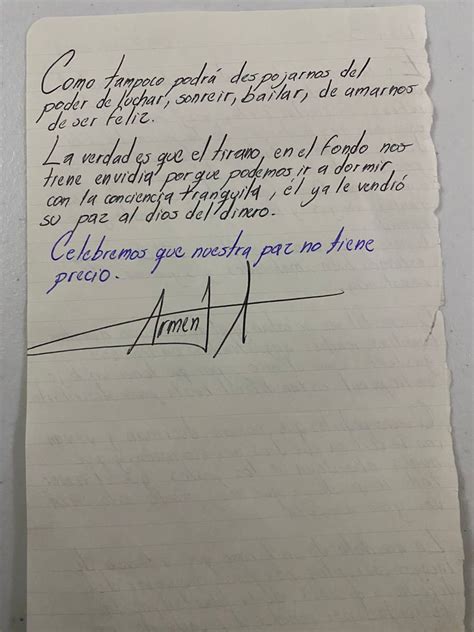 Como tampoco podrá despojarnos del
poder de luchar, sonreir, bailar, de amarnos
de ser feliz.
La verdad es que el tirano, en el fondo nos
tiene envidia, porque podemos ir a dormir
con la conciencia tranquila, él ya le vendió
su paz al dios del dinero.
Celebremos que nuestra paz no tiene
precio.
Armen